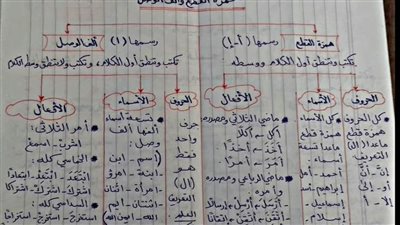 همزة القطع وألف الوصل
همزة القطع رسمها (أ-إ)
تكتب وتنطق أول الكلام ووسطه
ألف الوصل رسمها (ا)
تكتب وتنطق أول الكلام، وتكتب ولا تنطق وسط الكلام
الحروف
كل الحروف
همزة قطع
ماعدا (ال)
التعريف
إنّ - أنّ
أو - إلى
إلا - أ
الأسماء
كل الأسماء
همزة قطع
ماعدا تسعة
أسماء -
أحمد
إبراهيم
إسماعيل
إسلام
الأفعال
ماضي الثلاثي ومصدره
أكل - أكلًا
أخذ - أخذًا
أمر - أمرًا
ماضي الرباعي ومصدره
وأمره -
الحروف
حرف
واحد
فقط
هو
(ال)
التعريف
العلم
الأسماء
تسعة أسماء
ألفها ألف
وصل:
اسم - ابن
ابنة - امرؤ
امرأة - اثنان
اثنتان - ايم
الله
الأفعال
أمر الثلاثي:
اشرب - اسمع
الخماسي كله:
انتقد - انتقد - انتقادًا
اشترك - اشترك - اشتراكًا
السداسي كله:
استخرج - استخرج - استخراجًا